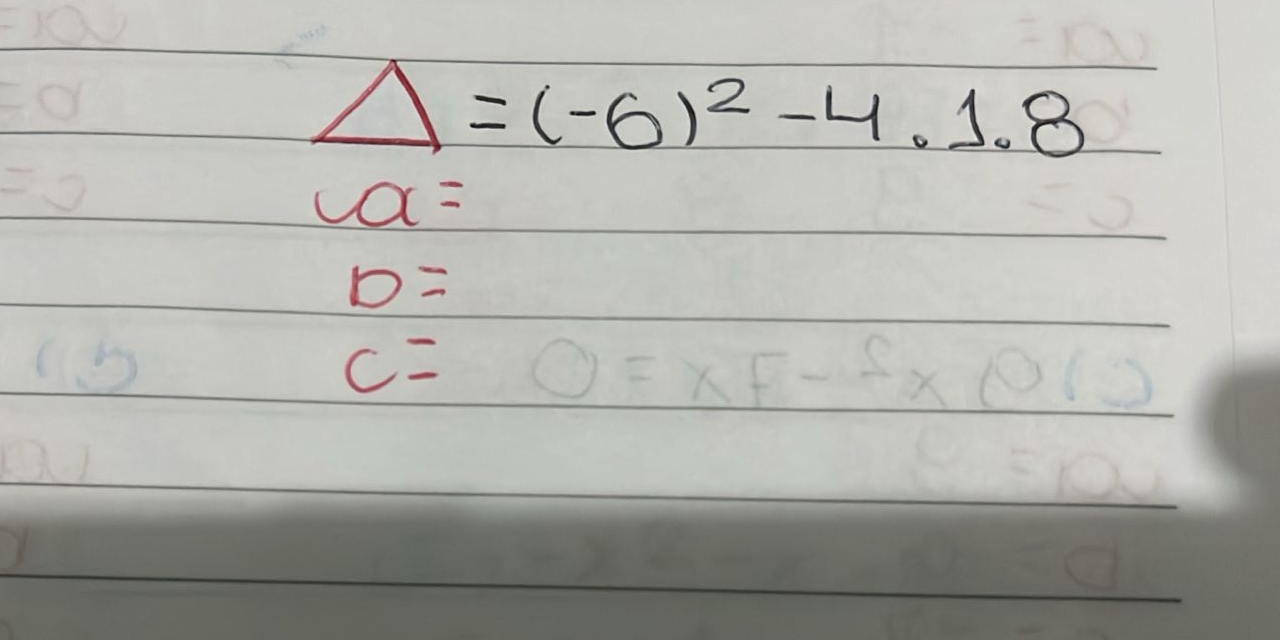 Δ = (-6)² - 4 . 1 . 8
a =
b =
c =